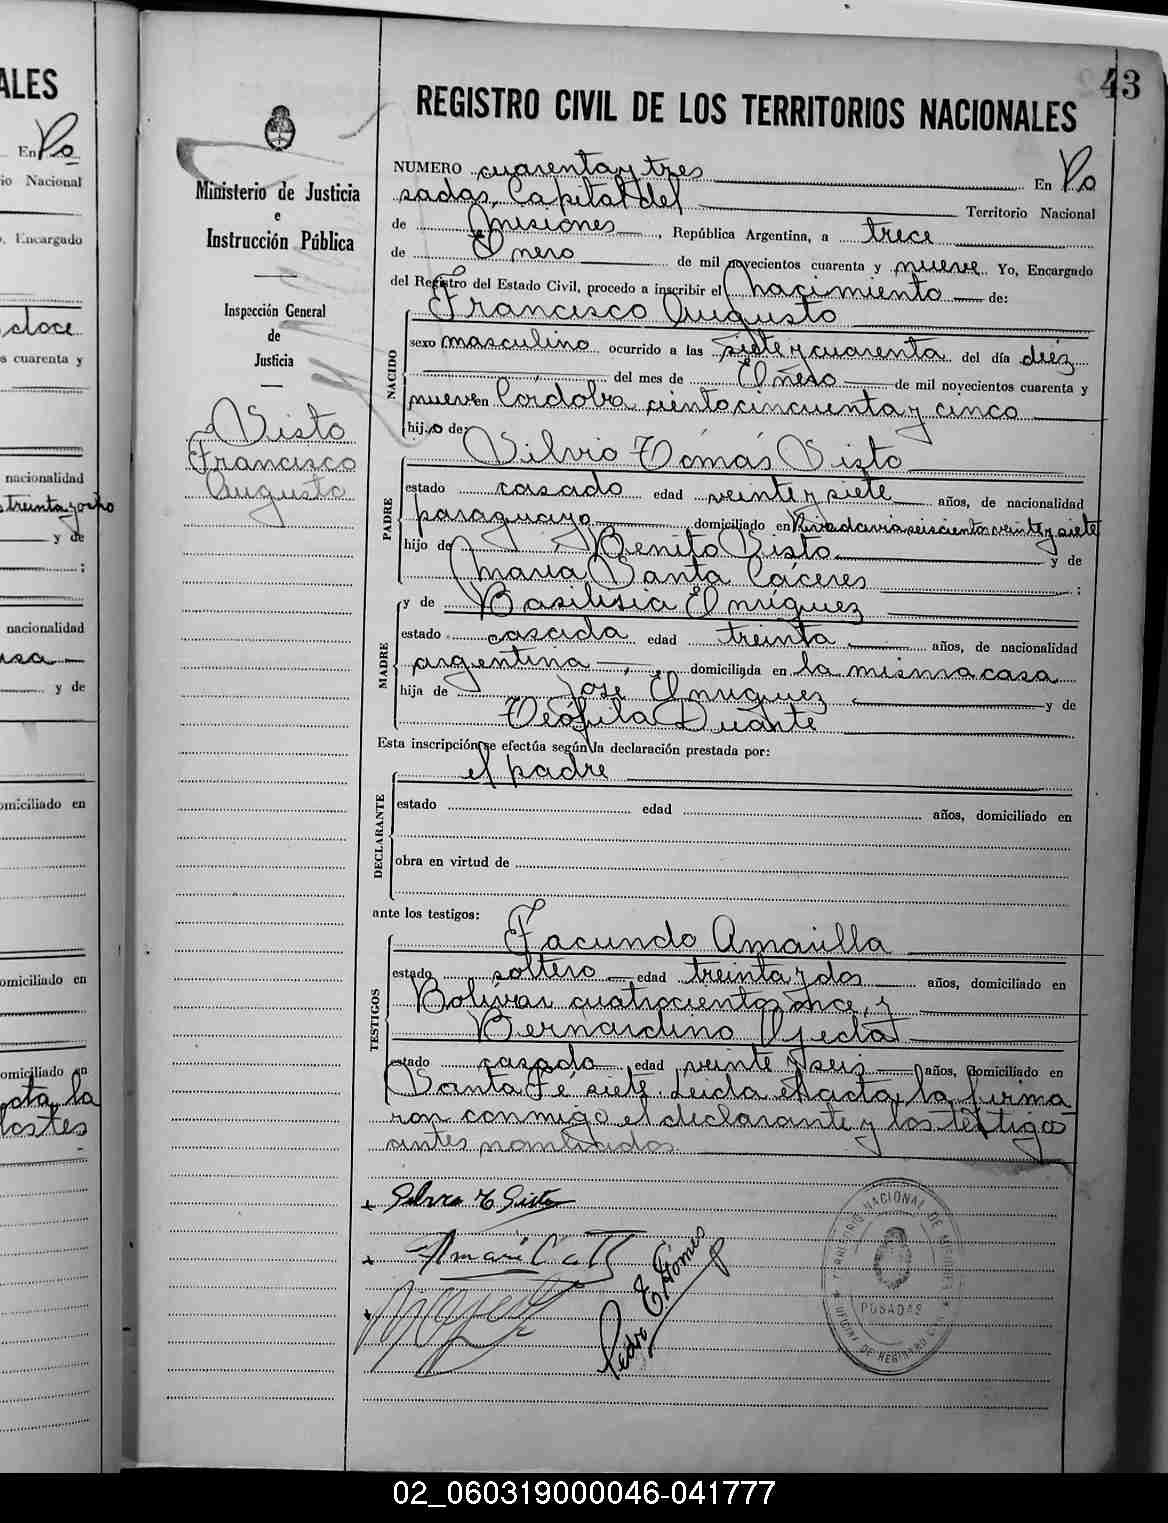 ALES
En Po
io Nacional
, Encargado
doce
s cuarenta y
nacionalidad
treinta y ocho
y de
;
nacionalidad
y de
omiciliado en
omiciliado en
omiciliado en
43
REGISTRO CIVIL DE LOS TERRITORIOS NACIONALES
Ministerio de Justicia
e
Instrucción Pública
Inspección General
de
Justicia
Sisto
Francisco
Augusto
NUMERO cuarenta y tres En Po
sadas, Capital del Territorio Nacional
de Misiones, República Argentina, a trece
de Enero de mil novecientos cuarenta y nueve Yo, Encargado
del Registro del Estado Civil, procedo a inscribir el nacimiento de:
NACIDO
Francisco Augusto
sexo masculino ocurrido a las siete y cuarenta del día diez
del mes de Enero de mil novecientos cuarenta y
nueve en Córdoba ciento cincuenta y cinco
hijo de:
PADRE
Silvio Tomás Sisto
estado casado edad veinte y siete años, de nacionalidad
paraguayo domiciliado en Rivadavia seiscientos veinte y siete
hijo de Benito Sisto y de
Maria Santa Cáceres ;
MADRE
y de Basilisia Enriquez
estado casada edad treinta años, de nacionalidad
argentina domiciliada en la misma casa
hija de José Enriquez y de
Teófila Duarte
Esta inscripción se efectúa según la declaración prestada por:
el padre
DECLARANTE
estado edad años, domiciliado en
obra en virtud de
ante los testigos:
TESTIGOS
Facundo Amarilla
estado soltero edad treinta y dos años, domiciliado en
Bolívar cuatrocientos once, y
Bernardino Ojeda
estado casado edad veinte y seis años, domiciliado en
Santa Fé siete. Leida el acta, la firma
ron conmigo el declarante y los testigos
antes nombrados.
Silvio T Sisto
Pedro E. Gómes
TERRITORIO NACIONAL DE MISIONES
POSADAS
OFICINA DE REGISTRO CIVIL
02_060319000046-041777